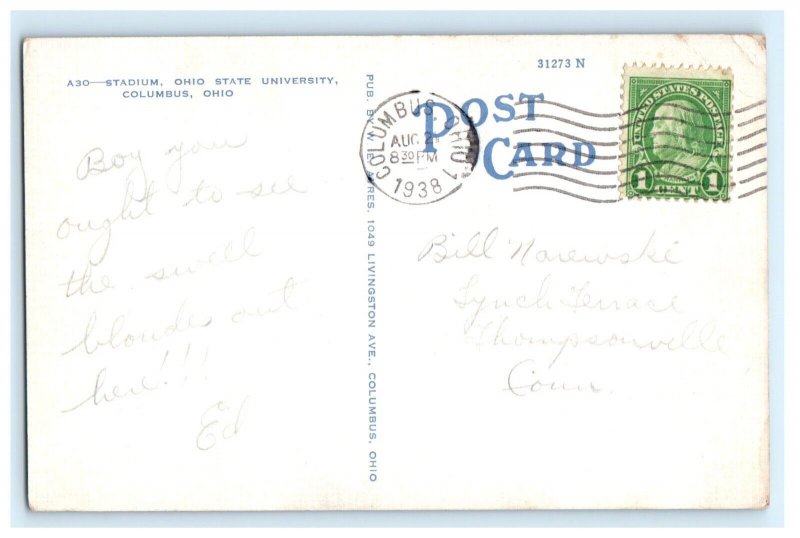 A30—STADIUM, OHIO STATE UNIVERSITY,
COLUMBUS, OHIO
Boy you
ought to see
the swell
blondes out
here!!!
Ed
PUB. BY W. E. AYRES, 1049 LIVINGSTON AVE., COLUMBUS, OHIO
31273 N
POST
CARD
COLUMBUS, OHIO 1
AUG 2
8 30 PM
1938
UNITED STATES POSTAGE
1 CENT 1
Bill Narewski
Lynch Terrace
Thompsonville
Conn.